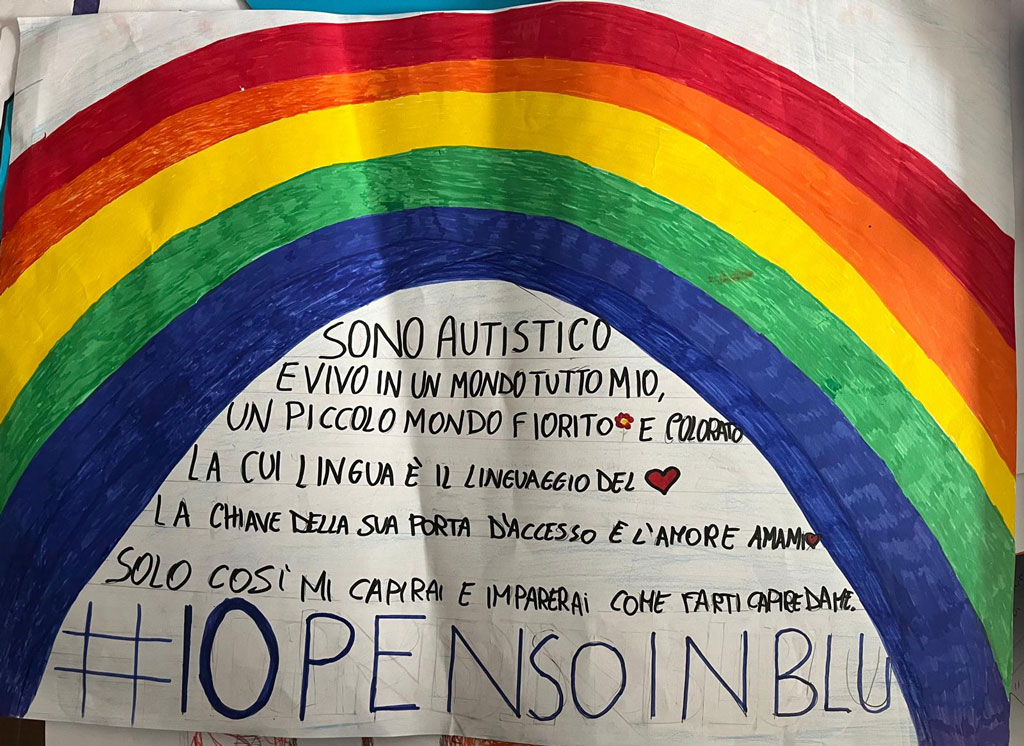 SONO AUTISTICO
E VIVO IN UN MONDO TUTTO MIO,
UN PICCOLO MONDO FIORITO E COLORATO
LA CUI LINGUA È IL LINGUAGGIO DEL
LA CHIAVE DELLA SUA PORTA D'ACCESSO È L'AMORE AMAMI
SOLO COSÌ MI CAPIRAI E IMPARERAI COME FARTI CAPIRE DA ME.
#IOPENSOINBLU